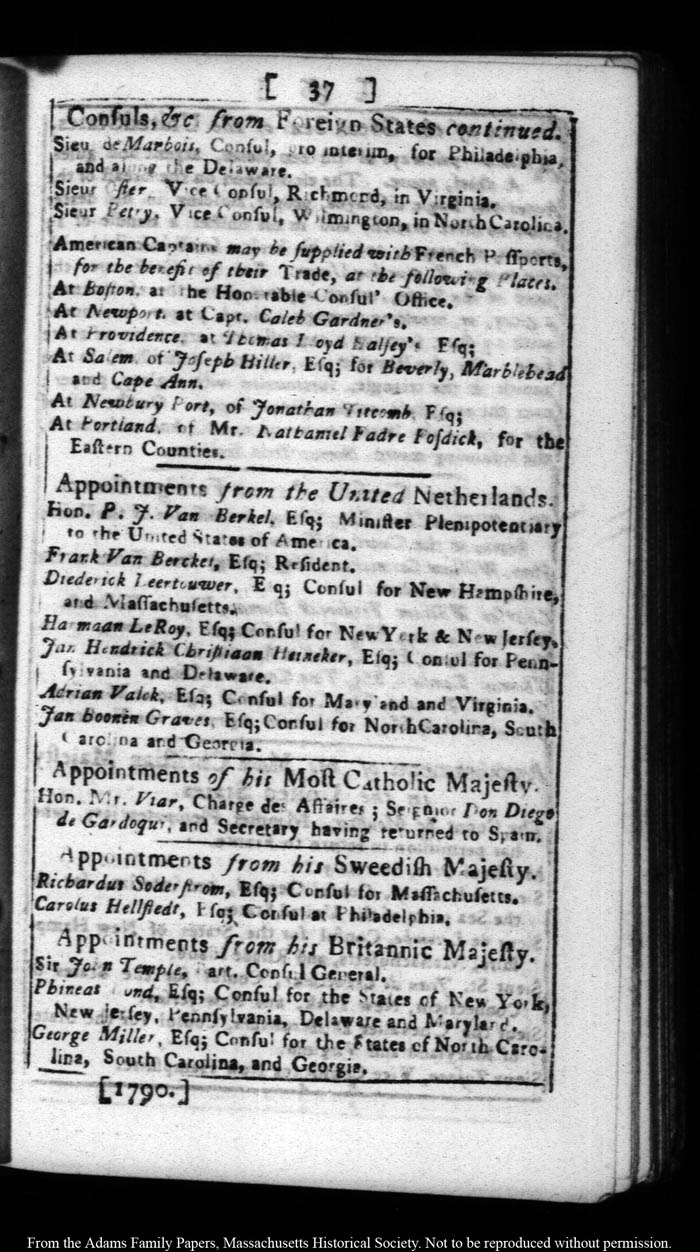 [ 37 ]
Conſuls, &c from Foreign States continued.
Sieu de Marbois, Conſul, pro interim, for Philadelphia,
and along the Delaware.
Sieur Oſter, Vice Conſul, Richmond, in Virginia.
Sieur Petry, Vice Conſul, Wilmington, in North Carolina.
American Captains may be ſupplied with French Paſſports,
for the benefit of their Trade, at the following Places.
At Boſton, at the Honorable Conſul' Office.
At Newport, at Capt. Caleb Gardner's.
At Providence, at Thomas Lloyd Halſey's Eſq;
At Salem, of Joſeph Hiller, Eſq; for Beverly, Marblehead
and Cape Ann.
At Newbury Port, of Jonathan Titcomb, Eſq;
At Portland, of Mr. Nathaniel Fadre Foſdick, for the
Eaſtern Counties.
Appointments from the United Netherlands.
Hon. P. J. Van Berkel, Eſq; Miniſter Plenipotentiary
to the United States of America.
Frank Van Berckel, Eſq; Reſident.
Diederick Leertouwer, Eſq; Conſul for New Hampſhire,
and Maſſachuſetts.
Harmaan LeRoy, Eſq; Conſul for New York & New Jerſey.
Jan Hendrick Chriſtiaan Heineker, Eſq; Conſul for Penn-
ſylvania and Delaware.
Adrian Valck, Eſq; Conſul for Maryland and Virginia.
Jan Boonen Graves, Eſq; Conſul for North Carolina, South
Carolina and Georgia.
Appointments of his Moſt Catholic Majeſty.
Hon. Mr. Viar, Charge des Affaires ; Seignior Don Diego
de Gardoqui, and Secretary having returned to Spain.
Appointments from his Sweediſh Majeſty.
Richardus Soderſtrom, Eſq; Conſul for Maſſachuſetts.
Carolus Hellſtedt, Eſq; Conſul at Philadelphia.
Appointments from his Britannic Majeſty.
Sir John Temple, Bart. Conſul General.
Phineas Bond, Eſq; Conſul for the States of New York,
New Jerſey, Pennſylvania, Delaware and Maryland.
George Miller, Eſq; Conſul for the States of North Caro-
lina, South Carolina, and Georgia.
[1790.]
From the Adams Family Papers, Massachusetts Historical Society. Not to be reproduced without permission.